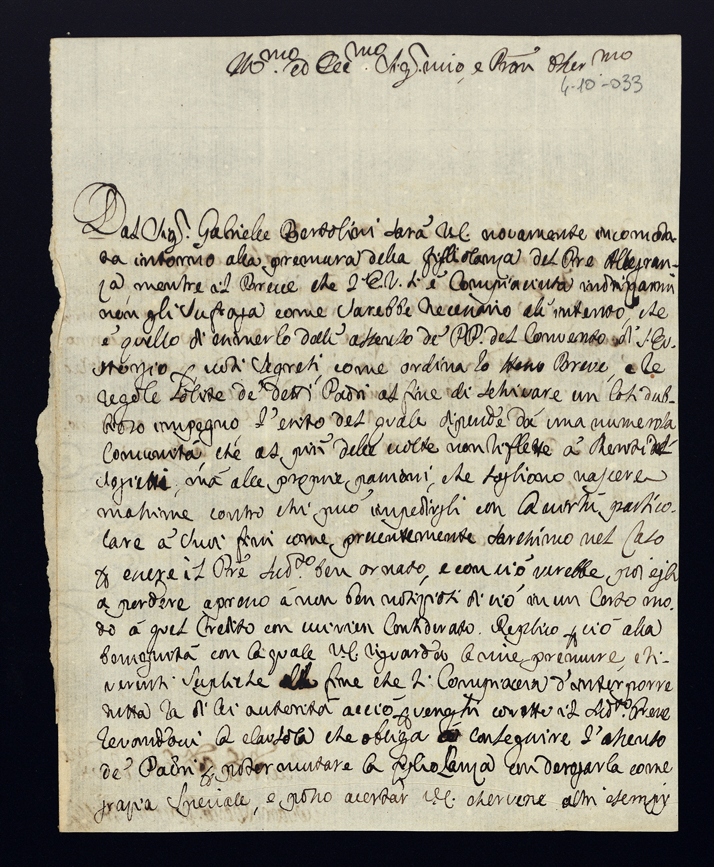 Ill.mo ed Ecc.mo Sig. mio, e Pron Osser.mo
4-10-033
Dal Sig.r Gabriele Bertolini sarà V.E. novamente incomoda-
ta intorno alla premura della figliolanza del Pre Allegran-
za mentre il Breve che l'E.V. si è Compiaciuta
non gli sufraga come sarebbe necesario all'intento che
è quello di esimerlo dall'assenso de' PP. del Convento di S. Eu-
storgio Secreti, come ordina lo steso Breve, e le
regole solite de' detti Padri al fine di schivare un
impegno l'esito del quale dipende da una numerosa
Comunità che il più delle volte non riflette à
mà alle proprie pasioni, che sogliono nascere
masime contro chi può impedirgli con Autorità partico-
lare à suoi fini come presentemente saresimo nel Caso
p esere il Pre Sud.to ben ornato, e con ciò verebbe poi egli
a perdere apreso à non ben di ciò in un Certo mo-
do à quel Credito con cui vien Considerato. Replico p ciò alla
benignità con la quale V.E. riguarda le mie premure,
verenti Supliche fine che si Compiaccia d'interporre
tutta la di lei autorità acciò p venghi il Sud.to Breve
levandovi la clausola che obliga à conseguire l'assenso
de' Padri p poter mutare la figliolanza con derogarla come
grazia Speciale, e poso acertar V.E. eservene altri esempi